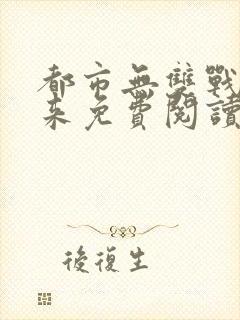 都市無雙戰
來免費閱讀
後復生